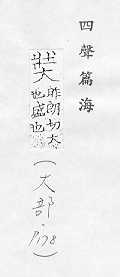 四聲篇海
奘昨朗切大
也盛也
(大部. P178)